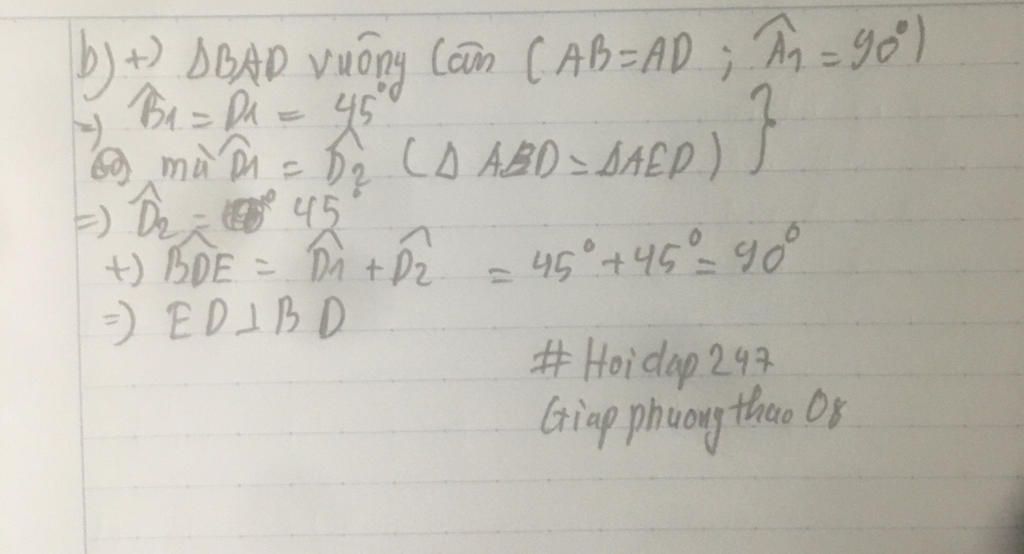 b) +) ΔBAD vuông cân (AB=AD ; Â1 = 90°)
=) B̂1 = D1 = 45°
mà D̂1 = D̂2 (Δ ABD = ΔAED) }
=) D̂2 = 45°
+) BD̂E = D̂1 + D̂2 = 45° + 45° = 90°
=) ED ⊥ BD
# Hoidap247
Giapphuongthao08